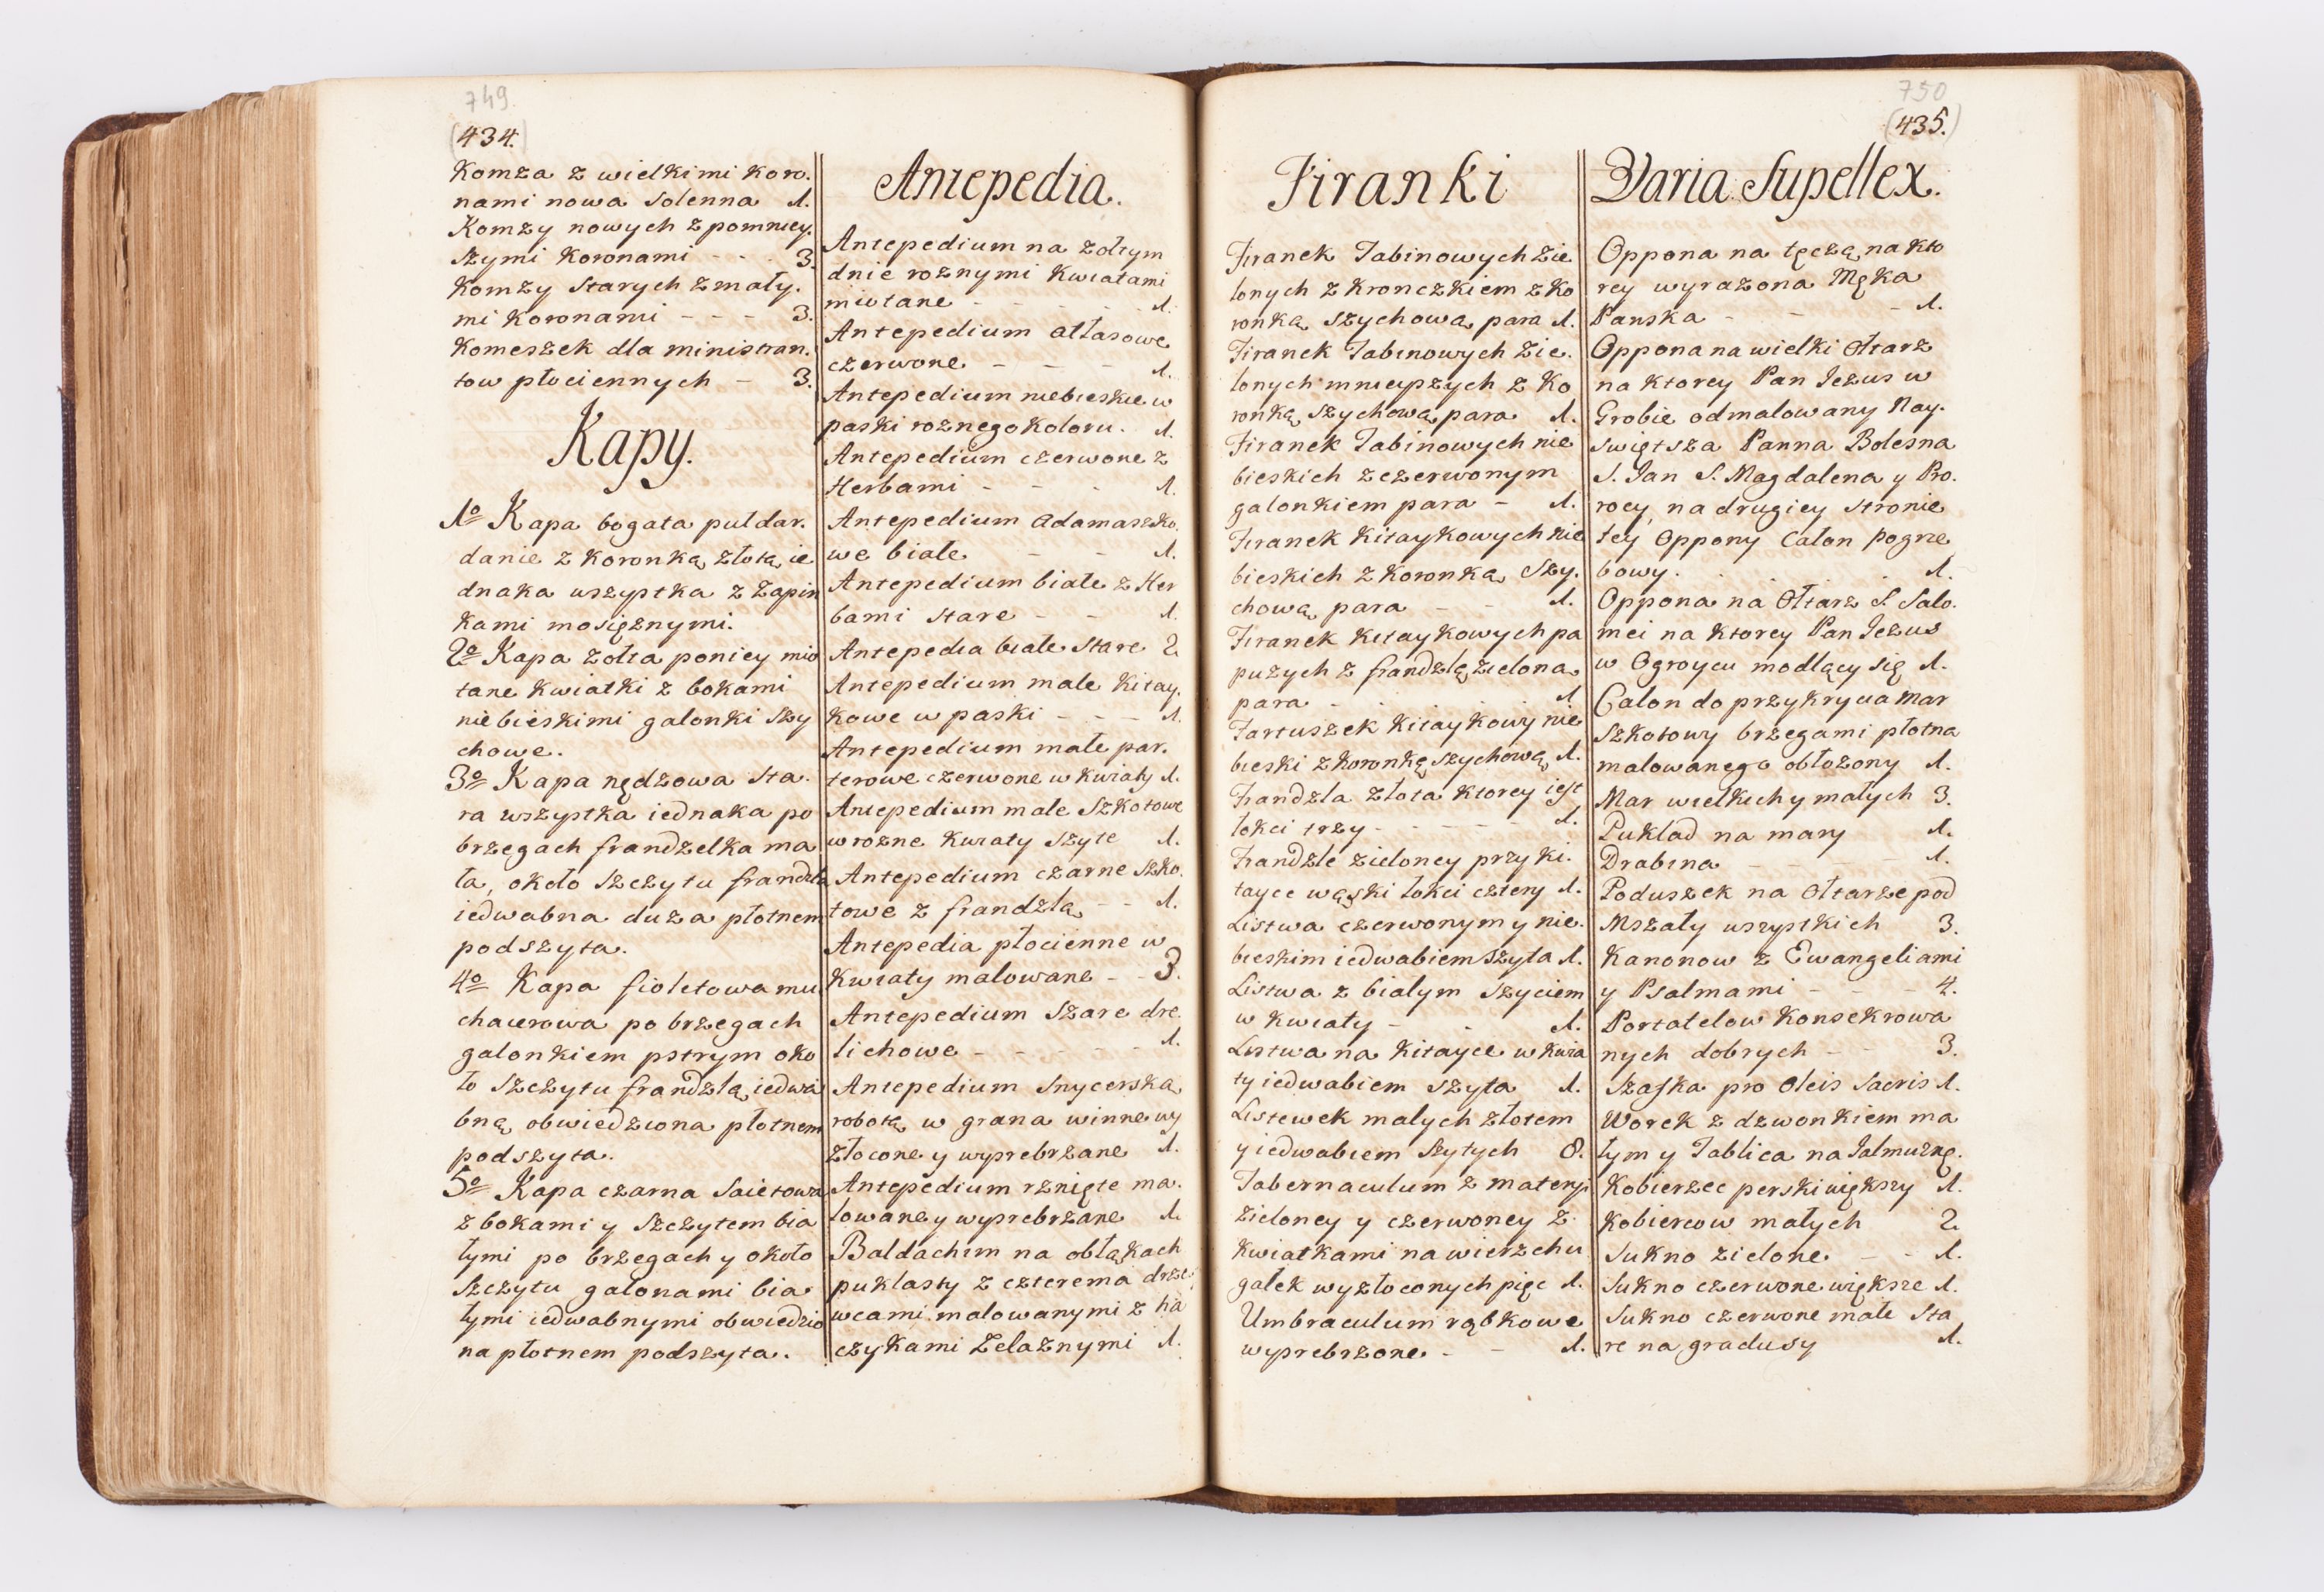 749.
(434.)
Komza z wielkimi koro.
nami nowa Solenna 1.
Komzy nowych z pomniey.
szymi Koronami - - 3.
Komzy Starych z mały.
mi Koronami - - - 3.
Komeszek dla ministran.
tow płociennych - 3.
Kapy.
1o Kapa bogata puldar.
danie z koronką złotą ie
dnaka wszystka z Zapin
kami mosiężnymi.
2o Kapa zołta poniey mio
tane kwiatki z bokami
niebieskimi galonki szy
chowe.
3o Kapa nędzowa sta.
ra wszystka iednaka po
brzegach frandzelka ma
ła, około Szczytu frandzla
iedwabna duza płotnem
podszyta.
4o Kapa fioletowa mu
chaierowa po brzegach
galonkiem pstrym oko
ło Szczytu frandzlą iedwa
bną obwiedziona płotnem
podszyta.
5o Kapa czarna Saietowa
z bokami y Szczytem bia
łymi po brzegach y około
Szczytu galonami bia
łymi iedwabnymi obwiedzio
na płotnem podszyta.
Antepedia.
Antepedium na zołtym
dnie roznymi Kwiatami
miotane - - - - 1.
Antepedium atłasowe
czerwone - - - 1.
Antepedium niebieskie w
paski roznego Koloru. 1.
Antepedium czerwone z
Herbami - - - 1.
Antepedium adamaszko.
we białe - - 1.
Antepedium białe z Her
bami stare - - 1.
Antepedia białe Stare 2
Antepedium małe Kitay.
kowe w paski - - - 1.
Antepedium małe par.
terowe czerwone w kwiaty 1.
Antepedium małe Szkotowe
w rozne kwiaty szyte 1.
Antepedium czarne szko.
towe z frandzlą - - 1.
Antepedia płocienne w
Kwiaty malowane - - 3.
Antepedium Szare dre
lichowe - - - - - 1.
Antepedium Snycerską
robotą w grana winne wy
złocone y wysrebrzane 1.
Antepedium rznięte ma.
lowane y wysrebrzane 1.
Baldachim na obłąkach
puklasty z czterema drze
wcami malowanymi z ha
czykami Zelaznymi 1.
750
(435.)
Firanki
Firanek Tabinowych Zie
lonych z kronczkiem z ko
ronką szychową para 1.
Firanek Tabinowych Zie.
lonych mnieyszych z Ko
ronką szychową para 1.
Firanek Tabinowych nie
bieskich z czerwonym
galonkiem para - 1.
Firanek Kitaykowych nie
bieskich z Koronką Szy.
chową para - - 1.
Firanek Kitaykowych pa
puzych z frandzlą zieloną
para - - - 1
Fartuszek Kitaykowy nie
bieski z koronką szychową 1.
Frandzla złota ktorey iest
łokci trzy - - - - - 1.
Frandzle zieloney przy ki.
tayce wąski łokci cztery 1.
Listwa czerwonym y nie.
bieskim iedwabiem Szyta 1.
Listwa z białym szyciem
w kwiaty - - 1.
Listwa na kitayce w kwia
ty iedwabiem szyta 1.
Listewek małych złotem
y iedwabiem Szytych 8.
Tabernaculum z materyi
zieloney y czerwoney z
kwiatkami na wierzchu
gałek wyzłoconych pięc 1.
Umbraculum rąbkowe
wysrebrzone - - 1.
Varia Supellex.
Oppona na tęczą, na kto
rey wyrazona Męka
Panska - - - 1.
Oppona na wielki Ołtarz
na ktorey Pan Jezus w
Grobie odmalowany Nay.
swiętsza Panna Bolesna
S. Jan S. Magdalena y Pro.
rocy, na drugiey stronie
tey Oppony Całon pogrze
bowy. 1.
Oppona na Ołtarz S. Salo.
mei na ktorey Pan Jezus
w Ogroycu modlący się 1.
Całon do przykrycia Mar
Szkotowy brzegami płotna
malowanego obłozony 1.
Mar wielkich y małych 3.
Puklad na mary 1.
Drabina - - - - 1.
Poduszek na Ołtarze pod
Mszały wszystkich 3.
Kanonow z Ewangeliami
y Psalmami - - - 4.
Portatelow Konsekrowa
nych dobrych - - 3.
Szafka pro Oleis Sacris 1.
Worek z dzwonkiem ma
łym y Tablica na Jalmuznę.
Kobierzec perski większy 1.
Kobiercow małych 2
Sukno zielone - - 1.
Sukno czerwone większe 1.
Sukno czerwone małe Sta
re na gradusy 1.